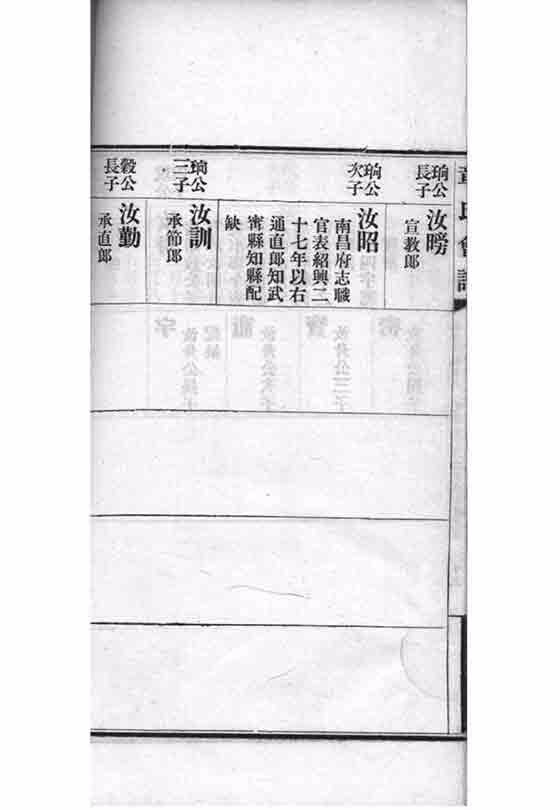 章氏會譜
瑀公
長子
汝暊
宣教郎
瑀公
次子
汝昭
南昌府志職
官表紹興二
十七年以右
通直郎知武
寧縣知縣配
缺
瑀公
三子
汝訓
承節郎
穀公
長子
汝勤
承直郎